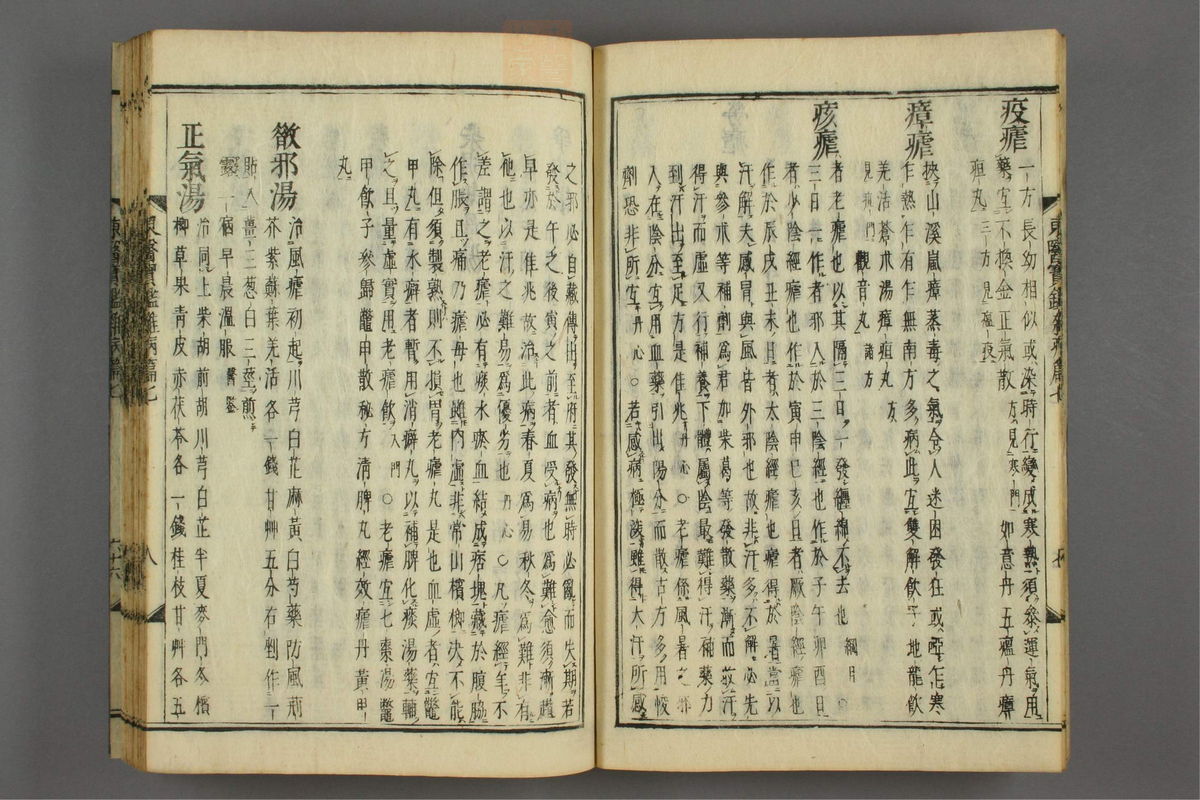 疫瘧
一方長幼相似或染時行變成寒熱須參運氣用
藥宜不換金正氣散方見寒門如意丹五瘟丹瘴
疸丸三方見瘟疫
瘴瘧
挾山溪嵐瘴蒸毒之氣令人迷困發狂或啞乍寒
乍熱乍有乍無南方多病此宜雙解飲子地龍飲
羌活蒼朮湯瘴疸丸方
見瘟門觀音丸諸方
痎瘧
者老瘧也以其隔三日一發纏綿不去也綱目○
三日一作者邪入於三陰經也作於子午卯酉日
者少陰經瘧也作於寅申巳亥日者厥陰經瘧也
作於辰戌丑未日者太陰經瘧也瘧得於暑當以
汗解夫感冒與風皆外邪也故非汗多不解必先
與參朮等補劑爲君加柴葛等發散藥漸而收汗
得汗而虛又行補養下體屬陰最難得汗補藥力
到汗出至足方是佳兆丹心○老瘧係風暑之邪
入在陰分宜用血藥引出陽分而散古方多用峻
劑恐非所宜丹心○若感病極深雖得大汗所感
之邪必自藏傳出至府其發無時必亂而失期若
發於午之後寅之前者血受病也爲難愈須漸趲
早亦是佳兆故治此病春夏爲易秋冬爲難非有
他也以汗之難易爲優劣也丹心○凡瘧經年不
差謂之老瘧必有痰水瘀血結成痞塊藏於腹脇
作脹且痛乃瘧母也雖內虛非常山檳榔決不能
除但須製熟則不損胃老瘧丸是也血虛者宜鱉
甲丸有水癖者暫用消癖丸以補脾化痰湯藥輔
之且量虛實用老瘧飲入門○老瘧宜七棗湯鱉
甲飲子參歸鱉甲散秘方淸脾丸經效瘧丹黃甲
丸
散邪湯
治風瘧初起川芎白芷麻黃白芍藥防風荊
芥紫蘇葉羌活各一錢甘艸五分右剉作一
貼入薑三葱白三莖煎
露一宿早晨溫服醫鑑
正氣湯
治同上柴胡前胡川芎白芷半夏麥門冬檳
榔草果靑皮赤茯苓各一錢桂枝甘艸各五
東醫寶鑑雜病篇七